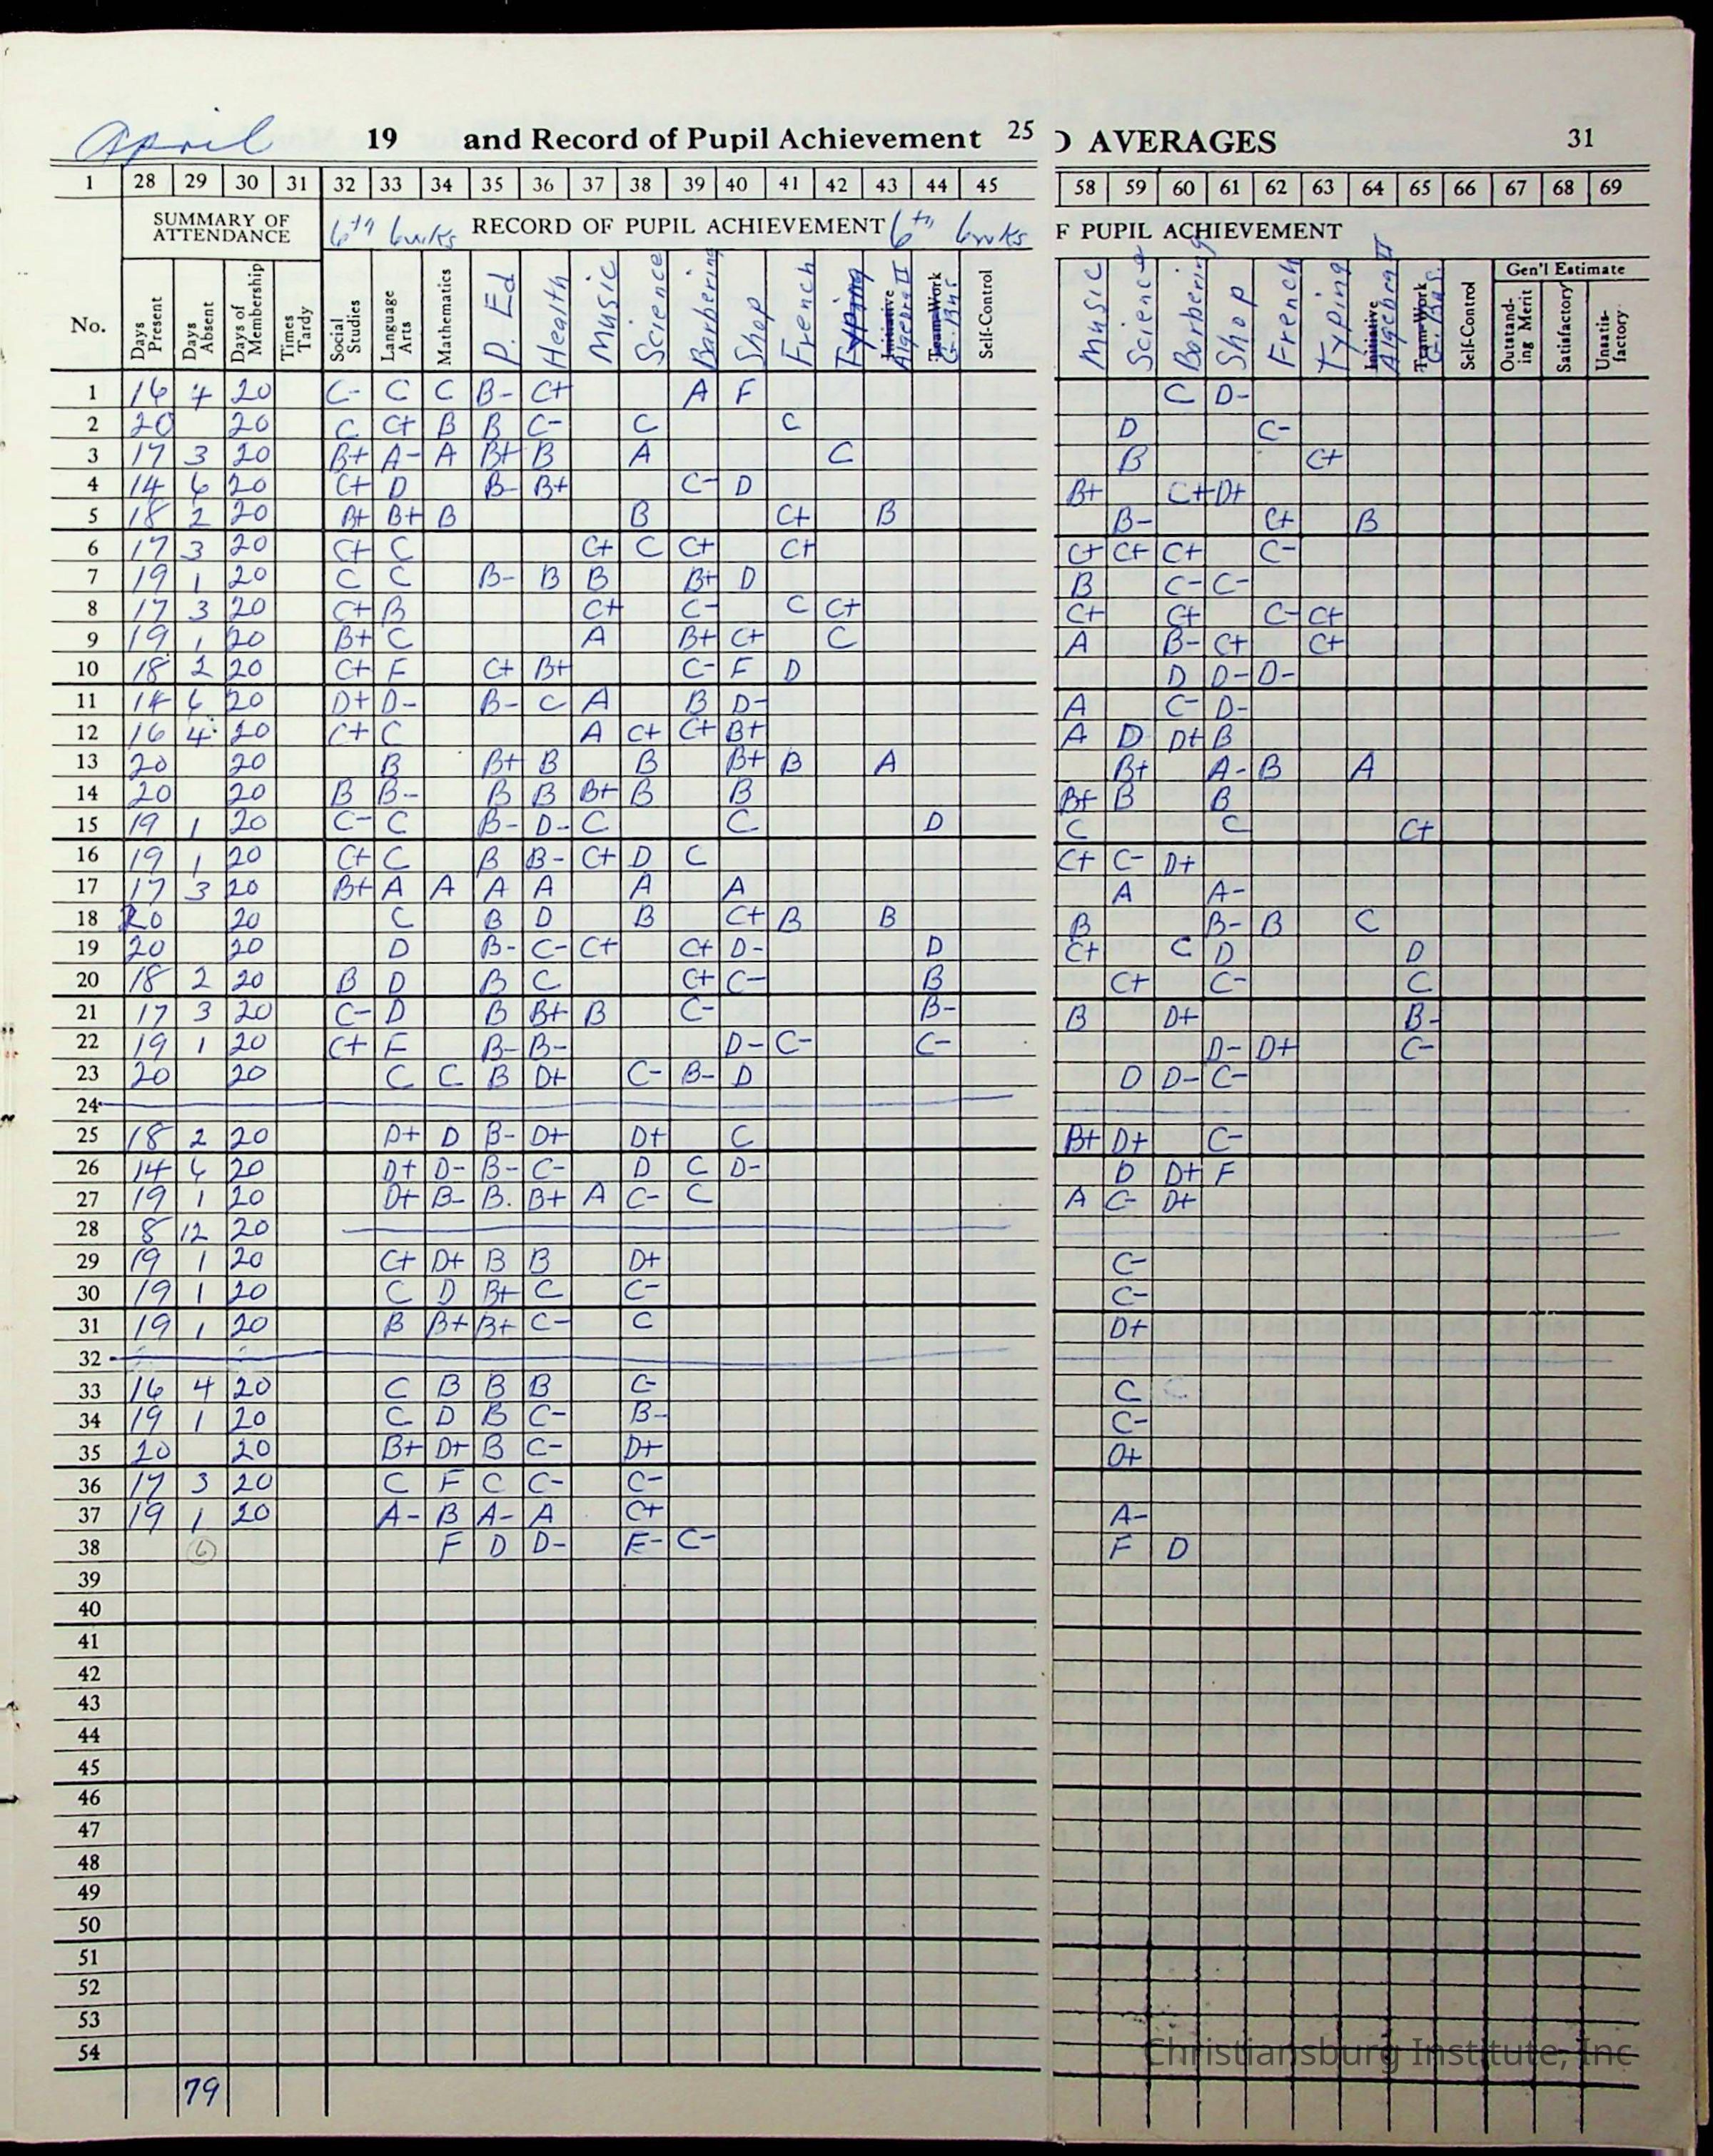 April 19 and Record of Pupil Achievement 25
D AVERAGES 31
1 28 29 30 31 32 33 34 35 36 37 38 39 40 41 42 43 44 45
58 59 60 61 62 63 64 65 66 67 68 69
SUMMARY OF ATTENDANCE 6th 6wks RECORD OF PUPIL ACHIEVEMENT 6th 6wks
F PUPIL ACHIEVEMENT
Gen'l Estimate
No. Days Present Days Absent Days of Membership Times Tardy Social Studies Language Arts Mathematics P. Ed Health Music Science Barbering Shop French Typing Initiative Algebra II Team-Work G. Bus Self-Control
Music Science Barbering Shop French Typing Initiative Algebra II Team-Work G. Bus. Self-Control Outstanding Merit Satisfactory Unsatisfactory
1 16 4 20 C- C C B- C+ A F C D-
2 20 20 C C+ B B C- C C D C-
3 17 3 20 B+ A- A B+ B A C B C+
4 14 6 20 C+ D B- B+ C- D B+ C+ D+
5 18 2 20 B+ B+ B B C+ B B- C+ B
6 17 3 20 C+ C C+ C C+ C+ C+ C+ C+ C-
7 19 1 20 C C B- B B B+ D B C- C-
8 17 3 20 C+ B C+ C- C C+ C+ C+ C- C+
9 19 1 20 B+ C A B+ C+ C A B- C+ C+
10 18 2 20 C+ F C+ B+ C- F D D D- D-
11 14 6 20 D+ D- B- C A B D- A C- D-
12 16 4 20 C+ C A C+ C+ B+ A D D+ B
13 20 20 B B+ B B B+ B A B+ A- B A
14 20 20 B B- B B B+ B B B+ B B
15 19 1 20 C- C B- D- C C D C C C+
16 19 1 20 C+ C B B- C+ D C C+ C- D+
17 17 3 20 B+ A A A A A A A A-
18 20 20 C B D B C+ B B B B- B C
19 20 20 D B- C- C+ C+ D- D C+ C D D
20 18 2 20 B D B C C+ C- B C+ C- C
21 17 3 20 C- D B B+ B C- B- B D+ B-
22 19 1 20 C+ F B- B- D- C- C- D- D+ C-
23 20 20 C C B D+ C- B- D D D- C-
24
25 18 2 20 D+ D B- D+ D+ C B+ D+ C-
26 14 6 20 D+ D- B- C- D C D- D D+ F
27 19 1 20 D+ B- B. B+ A C- C A C- D+
28 8 12 20
29 19 1 20 C+ D+ B B D+ C-
30 19 1 20 C D B+ C C- C-
31 19 1 20 B B+ B+ C- C D+
32
33 16 4 20 C B B B C- C
34 19 1 20 C D B C- B- C-
35 20 20 B+ D+ B C- D+ D+
36 17 3 20 C F C C- C-
37 19 1 20 A- B A- A C+ A-
38 6 F D D- F- C- F D
39
40
41
42
43
44
45
46
47
48
49
50
51
52
53
54
79
Christiansburg Institute, Inc